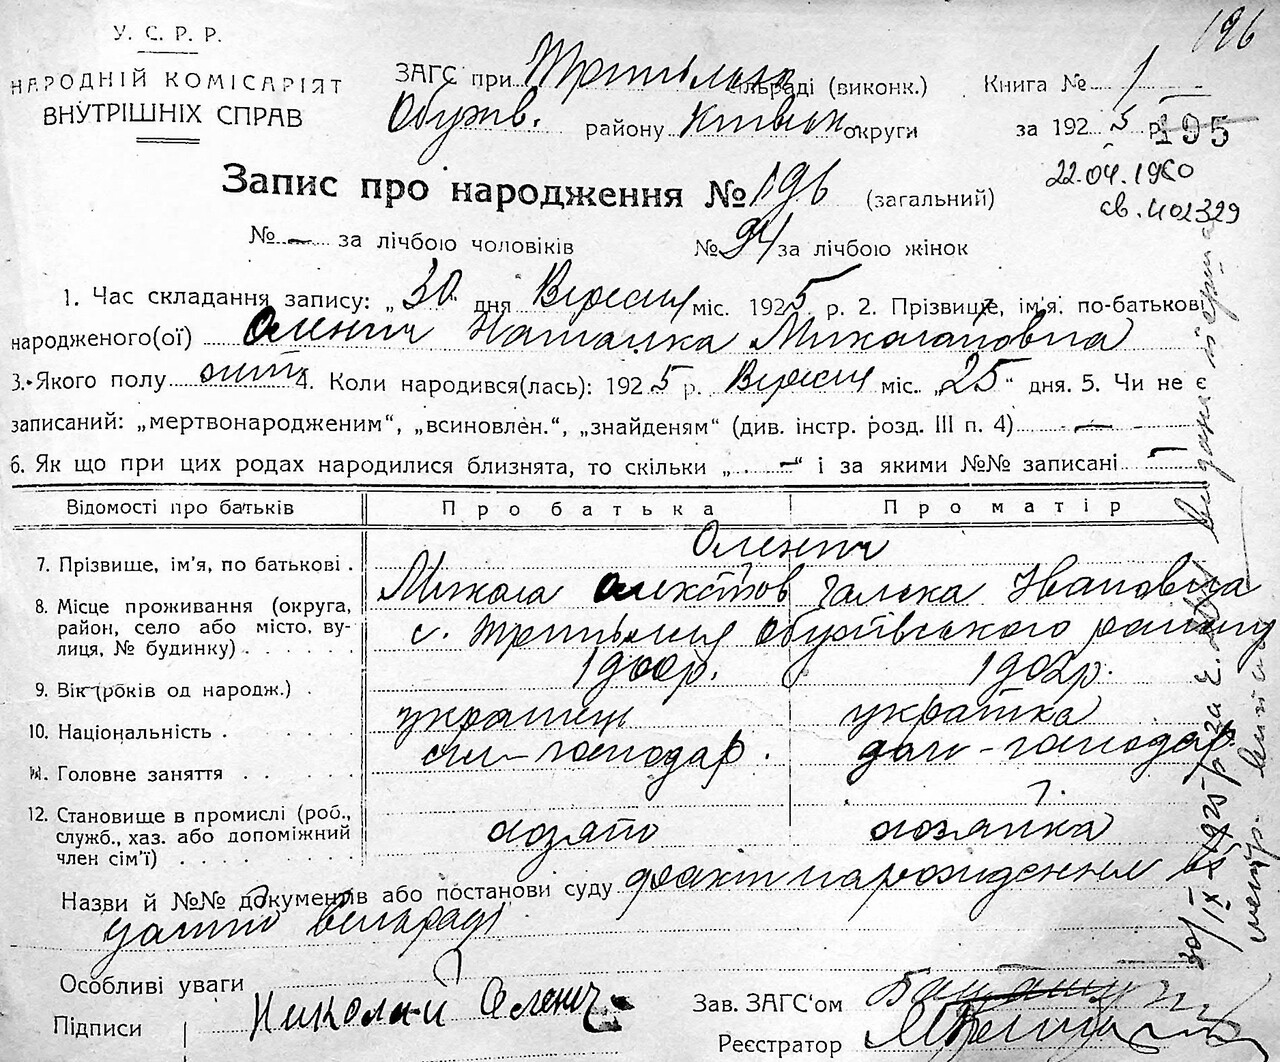 196
У. С. Р. Р.
НАРОДНІЙ КОМІСАРІЯТ
ВНУТРІШНІХ СПРАВ
ЗАГС при Трипільск сільраді (виконк.)
Обухів. району Київськ округи
Книга № 1
за 1925 р. 195
22.04.1960
св. 402329
Запис про народження № 196 (загальний)
№ — за лічбою чоловіків № 94 за лічбою жінок
1. Час складання запису: „30" дня Вересня міс. 1925 р. 2. Прізвище, ім'я, по-батькові
народженого(ої) Оленич Наталка Миколаївна
3. Якого полу жіноч 4. Коли народився(лась): 1925 р. Вересня міс. „25" дня. 5. Чи не є
записаний: „мертвонародженим", „всиновлен.", „знайденям" (див. інстр. розд. III п. 4) —
6. Як що при цих родах народилися близнята, то скільки „ — " і за якими №№ записані —
Відомості про батьків Про батька Про матір
7. Прізвище, ім'я, по батькові . Оленич
Микола Олексієв Галька Івановна
8. Місце проживання (округа, район, село або місто, вулиця, № будинку) с. Трипілля Обухівського району
9. Вік (років од народж.) . 1900р. 1902р.
10. Національність . українець українка
11. Головне заняття сіл-господар. дом-господар.
12. Становище в промислі (роб., служб., хаз. або допоміжний член сім'ї) хозяїн хозяйка
Назви й №№ документів або постанови суду факт народження
Особливі уваги
Підписи Николай Оленич
Зав. ЗАГС'ом
Реєстратор
30/IX 1925 р